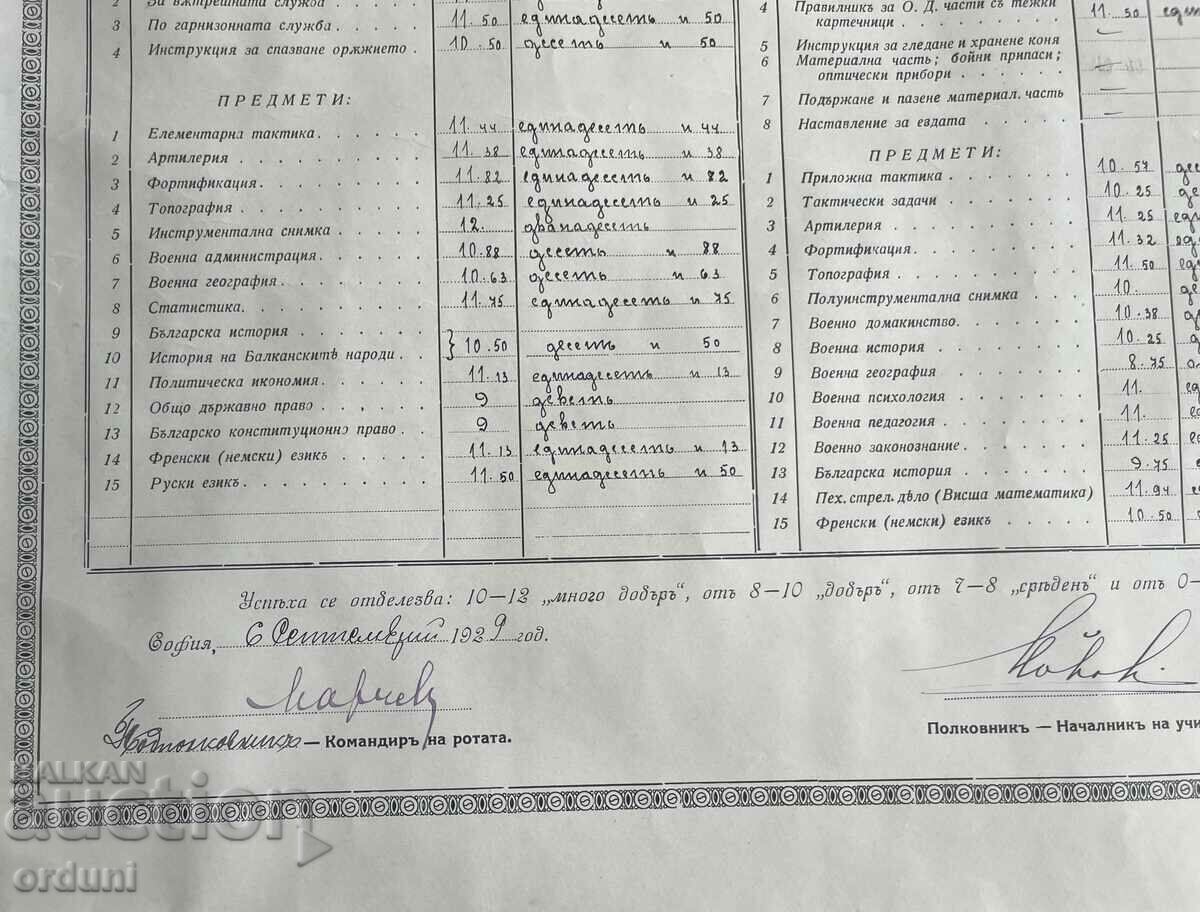 2 За вѫтрешната служба
3 По гарнизонната служба 11.50 единадесеть и 50
4 Инструкция за спазване орѫжието 10.50 десеть и 50
ПРЕДМЕТИ:
1 Елементарна тактика 11.44 единадесеть и 44
2 Артилерия 11.38 единадесеть и 38
3 Фортификация 11.82 единадесеть и 82
4 Топография 11.25 единадесеть и 25
5 Инструментална снимка 12. дванадесеть
6 Военна администрация 10.88 десеть и 88
7 Военна география 10.63 десеть и 63
8 Статистика 11.75 единадесеть и 75
9 Българска история
10 История на Балканскитѣ народи } 10.50 десеть и 50
11 Политическа икономия 11.13 единадесеть и 13
12 Общо държавно право 9 деветь
13 Българско конституционно право 9 деветь
14 Френски (немски) езикъ 11.13 единадесеть и 13
15 Руски езикъ 11.50 единадесеть и 50
4 Правилникъ за О. Д. части съ тежки
картечници 11.50
5 Инструкция за гледане и хранене коня
6 Материална часть; бойни припаси;
оптически прибори
7 Подържане и пазене материал. часть
8 Наставление за ездата
ПРЕДМЕТИ:
1 Приложна тактика 10.57
2 Тактически задачи 10.25
3 Артилерия 11.25
4 Фортификация 11.32
5 Топография 11.50
6 Полуинструментална снимка 10.
7 Военно домакинство 10.38
8 Военна история 10.25
9 Военна география 8.75
10 Военна психология 11.
11 Военна педагогия 11.
12 Военно законознание 11.25
13 Българска история 9.75
14 Пех. стрел. дѣло (Висша математика) 11.94
15 Френски (немски) езикъ 10.50
Успѣха се отбелезва: 10—12 „много добъръ“, отъ 8—10 „добъръ“, отъ 7—8 „срѣденъ“ и отъ 0—
София, 6 Септемврий 1929 год.
Подполковникъ — Командиръ на ротата.
Полковникъ — Началникъ на учи
BALKAN
auction
orduni